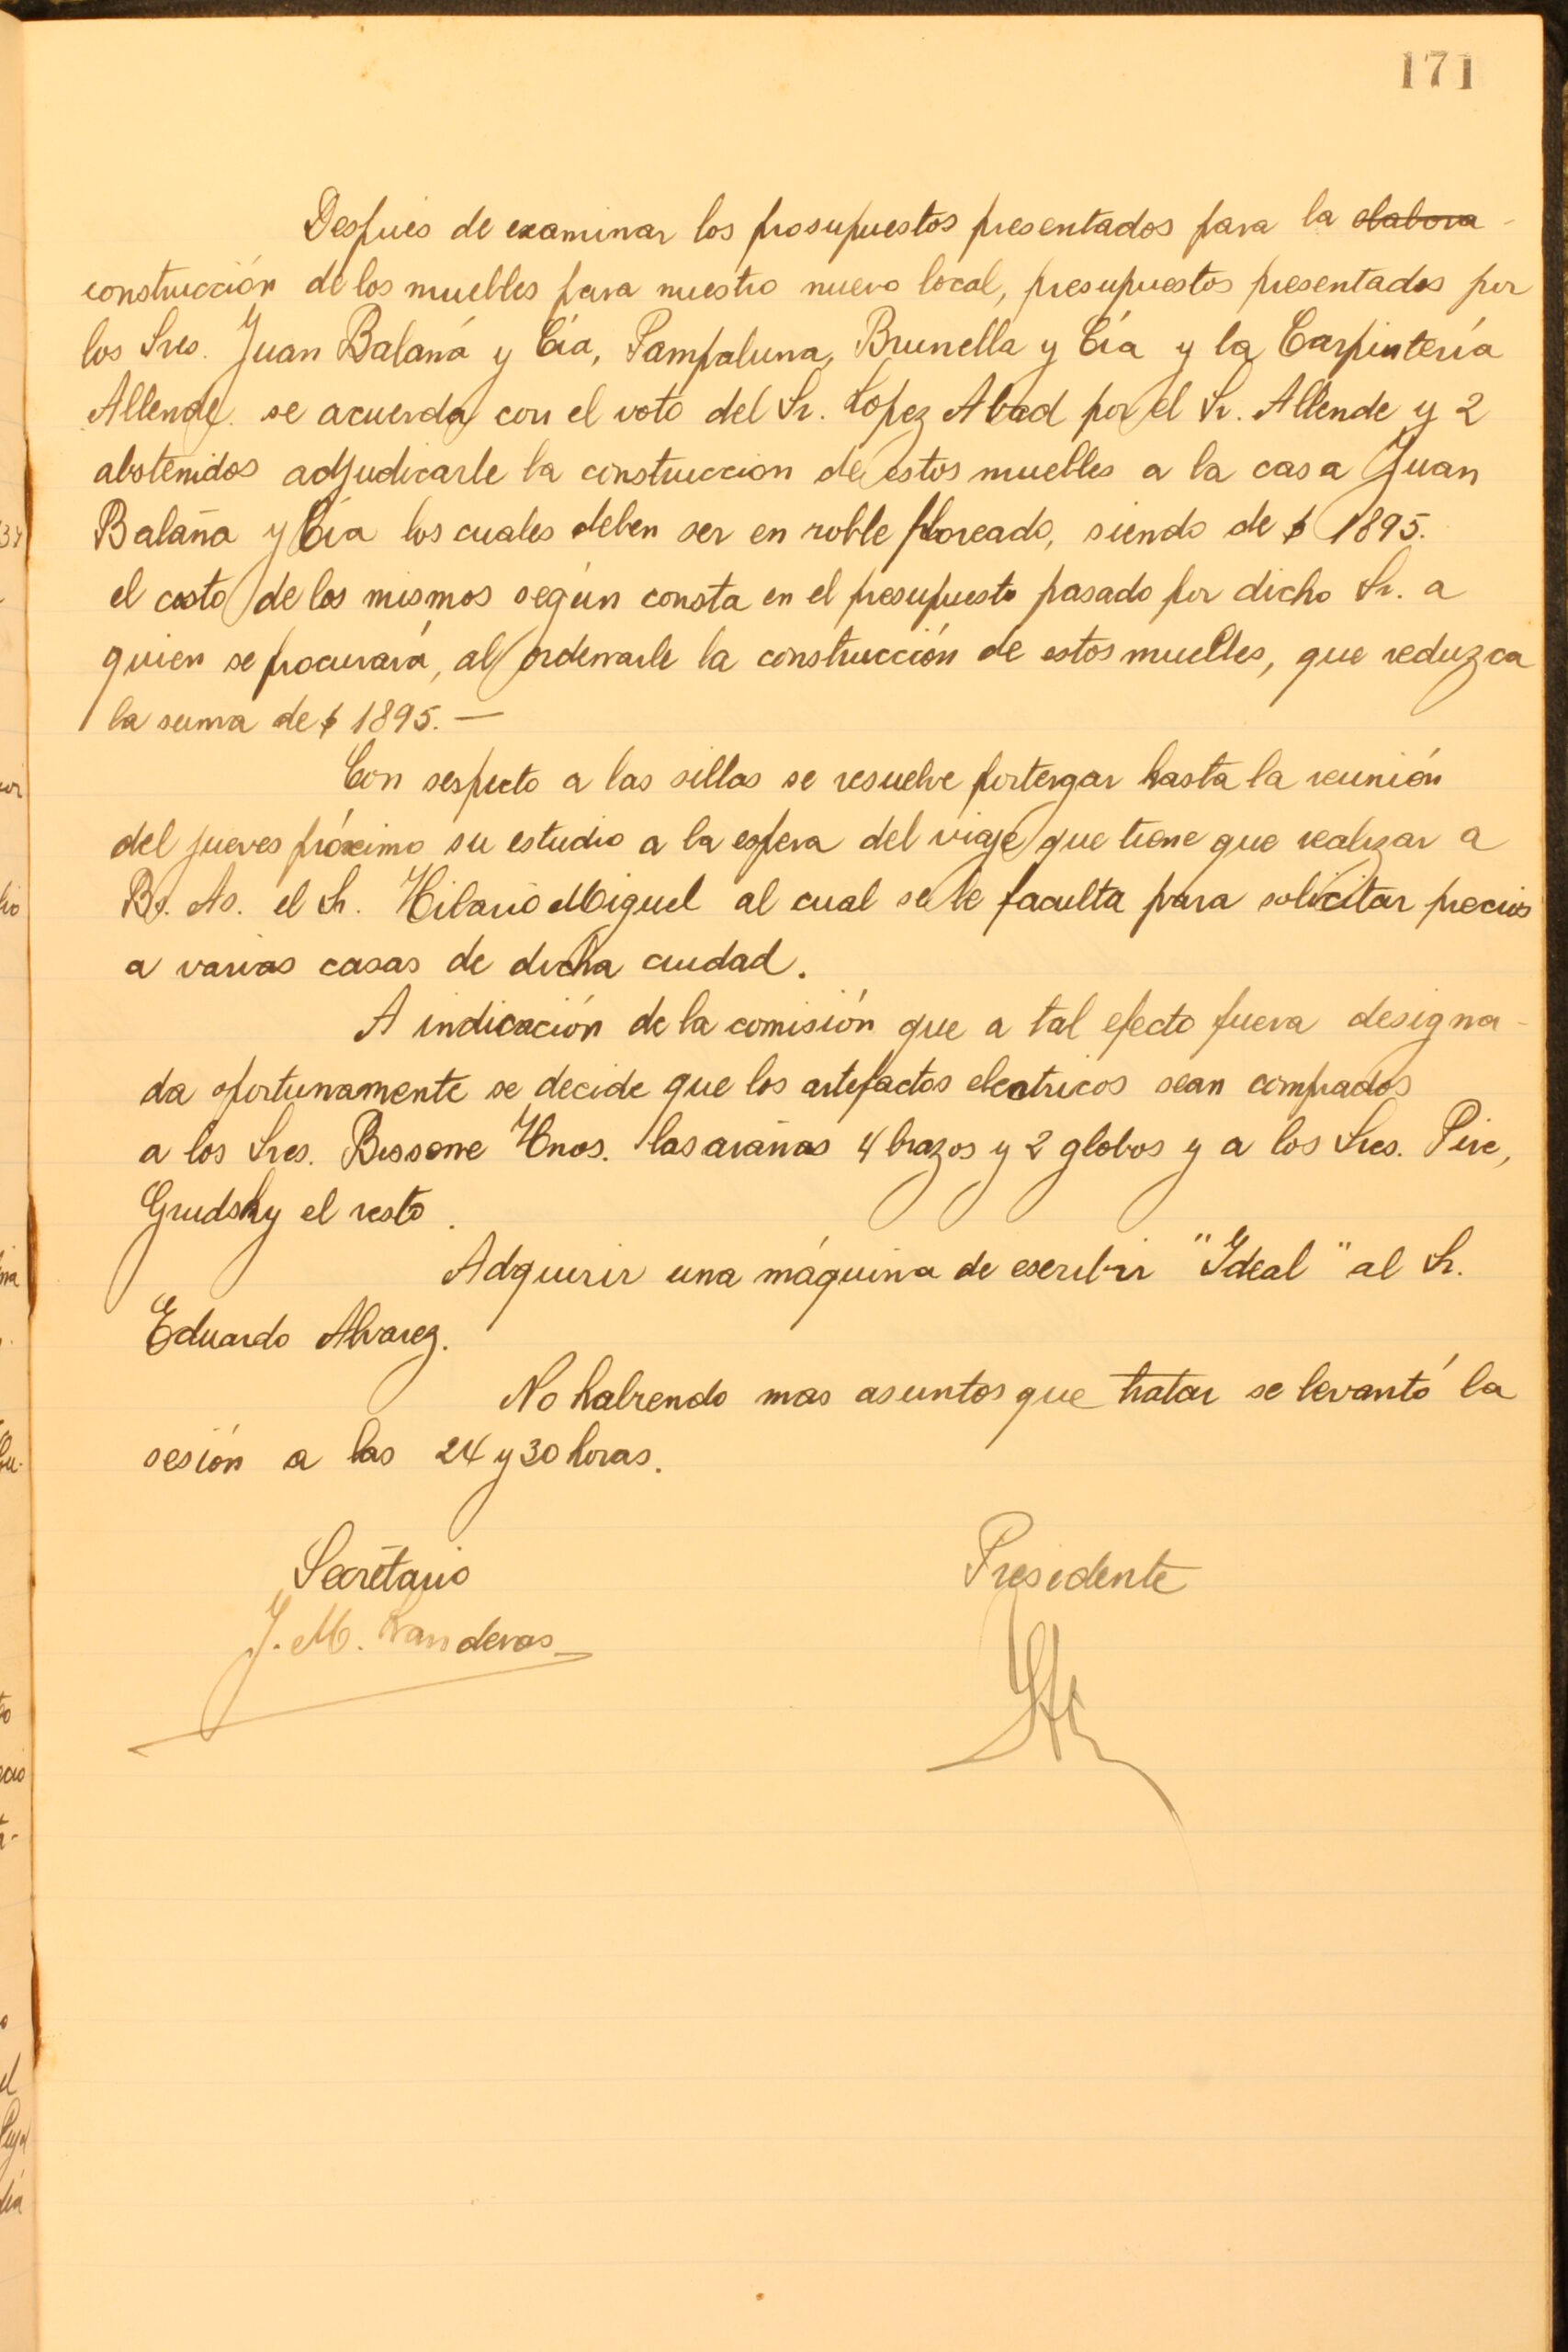 171
Despues de examinar los prosupuestos presentados para la elabora-
construcción de los muebles para nuestro nuevo local, presupuestos presentados por
los Sres. Juan Balaña y Cía, Pampaluna, Brunella y Cía y la Carpintería
Allende. se acuerda con el voto del Sr. Lopez Abad por el Sr. Allende y 2
abstenidos adjudicarle la construccion de estos muelles a la casa Juan
Balaña y Cía los cuales deben ser en roble floreado, siendo de $ 1895.
el costo de los mismos según consta en el presupuesto pasado por dicho Sr. a
quien se procurará, al ordenarle la construcción de estos muelles, que reduzca
la suma de $ 1895. —
Con respecto a las sillas se resuelve postergar hasta la reunión
del jueves próximo su estudio a la espera del viaje que tiene que realizar a
Bs. As. el Sr. Hilario Miguel al cual se le faculta para solicitar precios
a varias casas de dicha ciudad.
A indicación de la comisión que a tal efecto fuera designa-
da oportunamente se decide que los artefactos electricos sean comprados
a los Sres. Bissone Hnos. las arañas 4 brazos y 2 globos y a los Sres. Pire,
Grudsky el resto.
Adquirir una máquina de escribir "Ideal" al Sr.
Eduardo Alvarez.
No habiendo mas asuntos que tratar se levantó la
sesión a las 24 y 30 horas.
Secretario
Presidente
J. M.